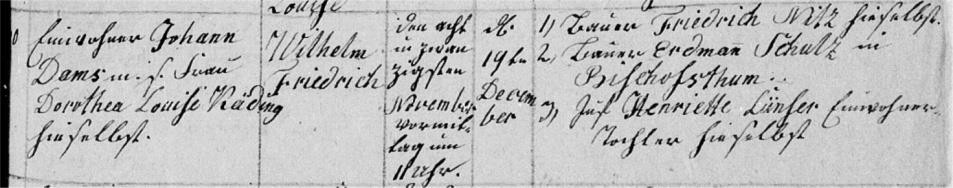 Louise
Einwohner Johann
Dams m. s. Frau
Dorothea Louise Käding
hieselbst.
Wilhelm
Friedrich
den acht
und zwan
zigsten
November
vormit-
tag um
11 Uhr.
d.
19ten
Decem
ber
1) Bauer Friedrich Nitz hieselbst.
2) Bauer Erdman Schulz in
Bischofsthum.
3) Juf. Henriette Lünser Einwohner-
Tochter hieselbst